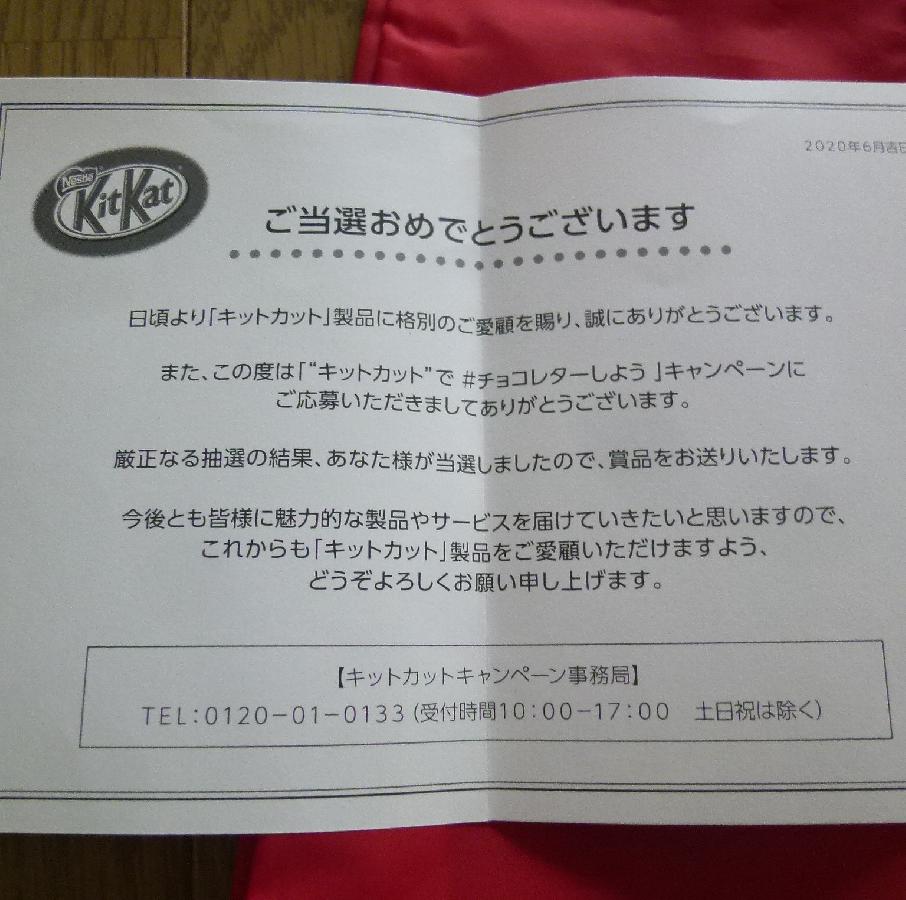 2020年6月吉日
Nestlé
KitKat
ご当選おめでとうございます
日頃より「キットカット」製品に格別のご愛顧を賜り、誠にありがとうございます。
また、この度は「“キットカット”で #チョコレターしよう 」キャンペーンに
ご応募いただきましてありがとうございます。
厳正なる抽選の結果、あなた様が当選しましたので、賞品をお送りいたします。
今後とも皆様に魅力的な製品やサービスを届けていきたいと思いますので、
これからも「キットカット」製品をご愛顧いただけますよう、
どうぞよろしくお願い申し上げます。
【キットカットキャンペーン事務局】
TEL：0120－01－0133（受付時間10：00－17：00　土日祝は除く）